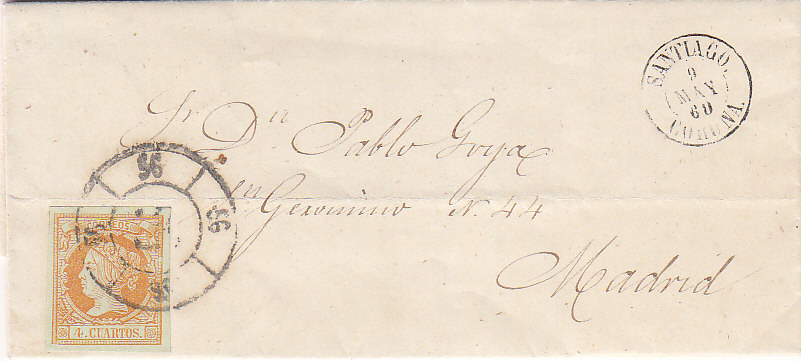 SANTIAGO.
9
MAY
60
CORUÑA.
Sr. Dn
Pablo Goya
Sn Geronimo N. 44
Madrid
56
56
56
CORREOS
4 CUARTOS.